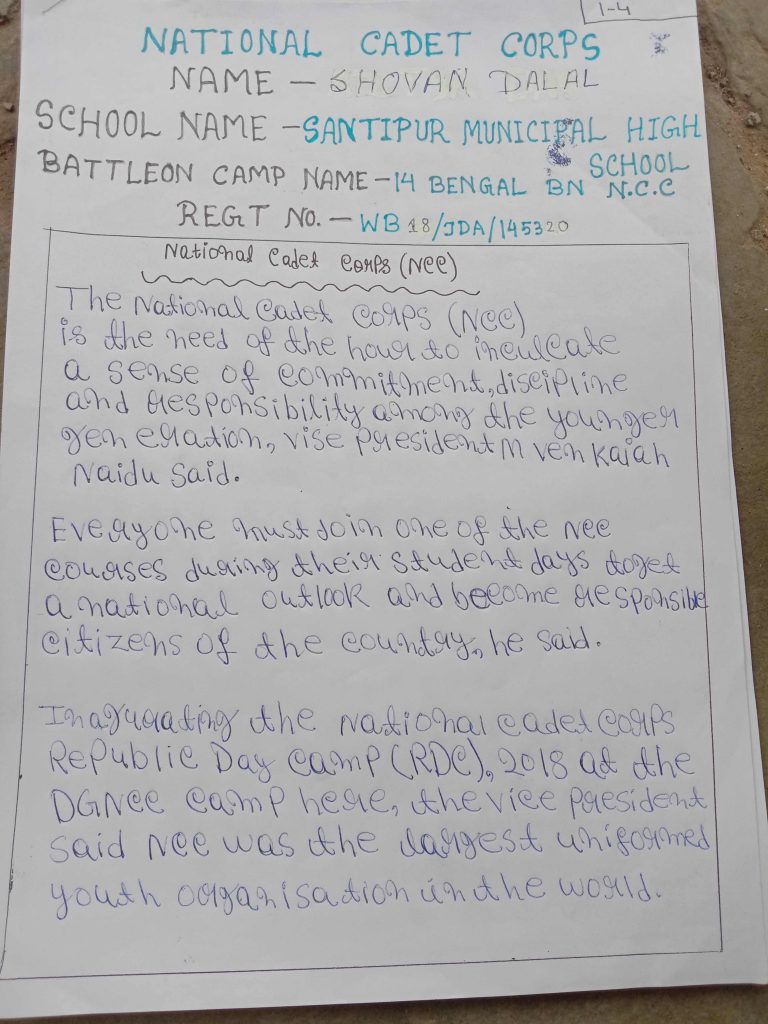 1-4
NATIONAL CADET CORPS
NAME - SHOVAN DALAL
SCHOOL NAME - SANTIPUR MUNICIPAL HIGH
SCHOOL
BATTLEON CAMP NAME - 14 BENGAL BN N.C.C
REGT NO. - WB 18/JDA/145320
National Cadet Corps (NCC)
The National Cadet Corps (NCC)
is the need of the hour to inculcate
a sense of commitment, discipline
and responsibility among the younger
generation, vise president M venkaiah
Naidu said.
Everyone must join one of the NCC
courses during their student days to get
a national outlook and become responsible
citizens of the country, he said.
Inagurating the National Cadet Corps
Republic Day Camp (RDC), 2018 at the
DGNCC camp here, the vice president
said NCC was the largest uniformed
youth organisation in the world.